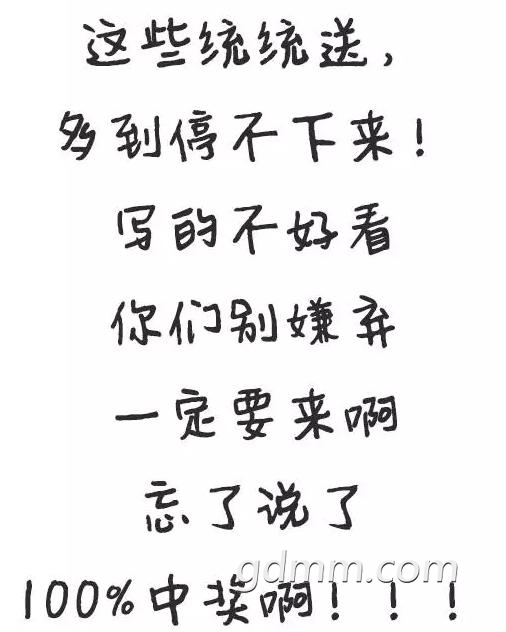 这些统统送，
多到停不下来！
写的不好看
你们别嫌弃
一定要来啊
忘了说了
100%中奖啊！！！
gdmm.com